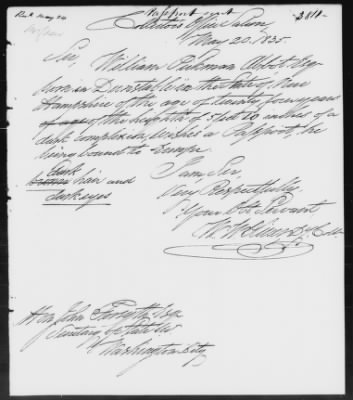 Passport sent
Recd May 24
Collector's Office Salem
May 20. 1835.
Sir,
William Parkman Abbot Esq
born in Dunstable in the State of New
Hampshire of the age of twenty four years
of age of the heighth of 5 feet 10 inches of a
dark complexion, wishes a Passport, he
being bound to Europe
dark
brown hair and
dark eyes
I am Sir,
Very Respectfully
Your Obt Servant
Hon John Forsyth Esq
Secretary of State
Washington City